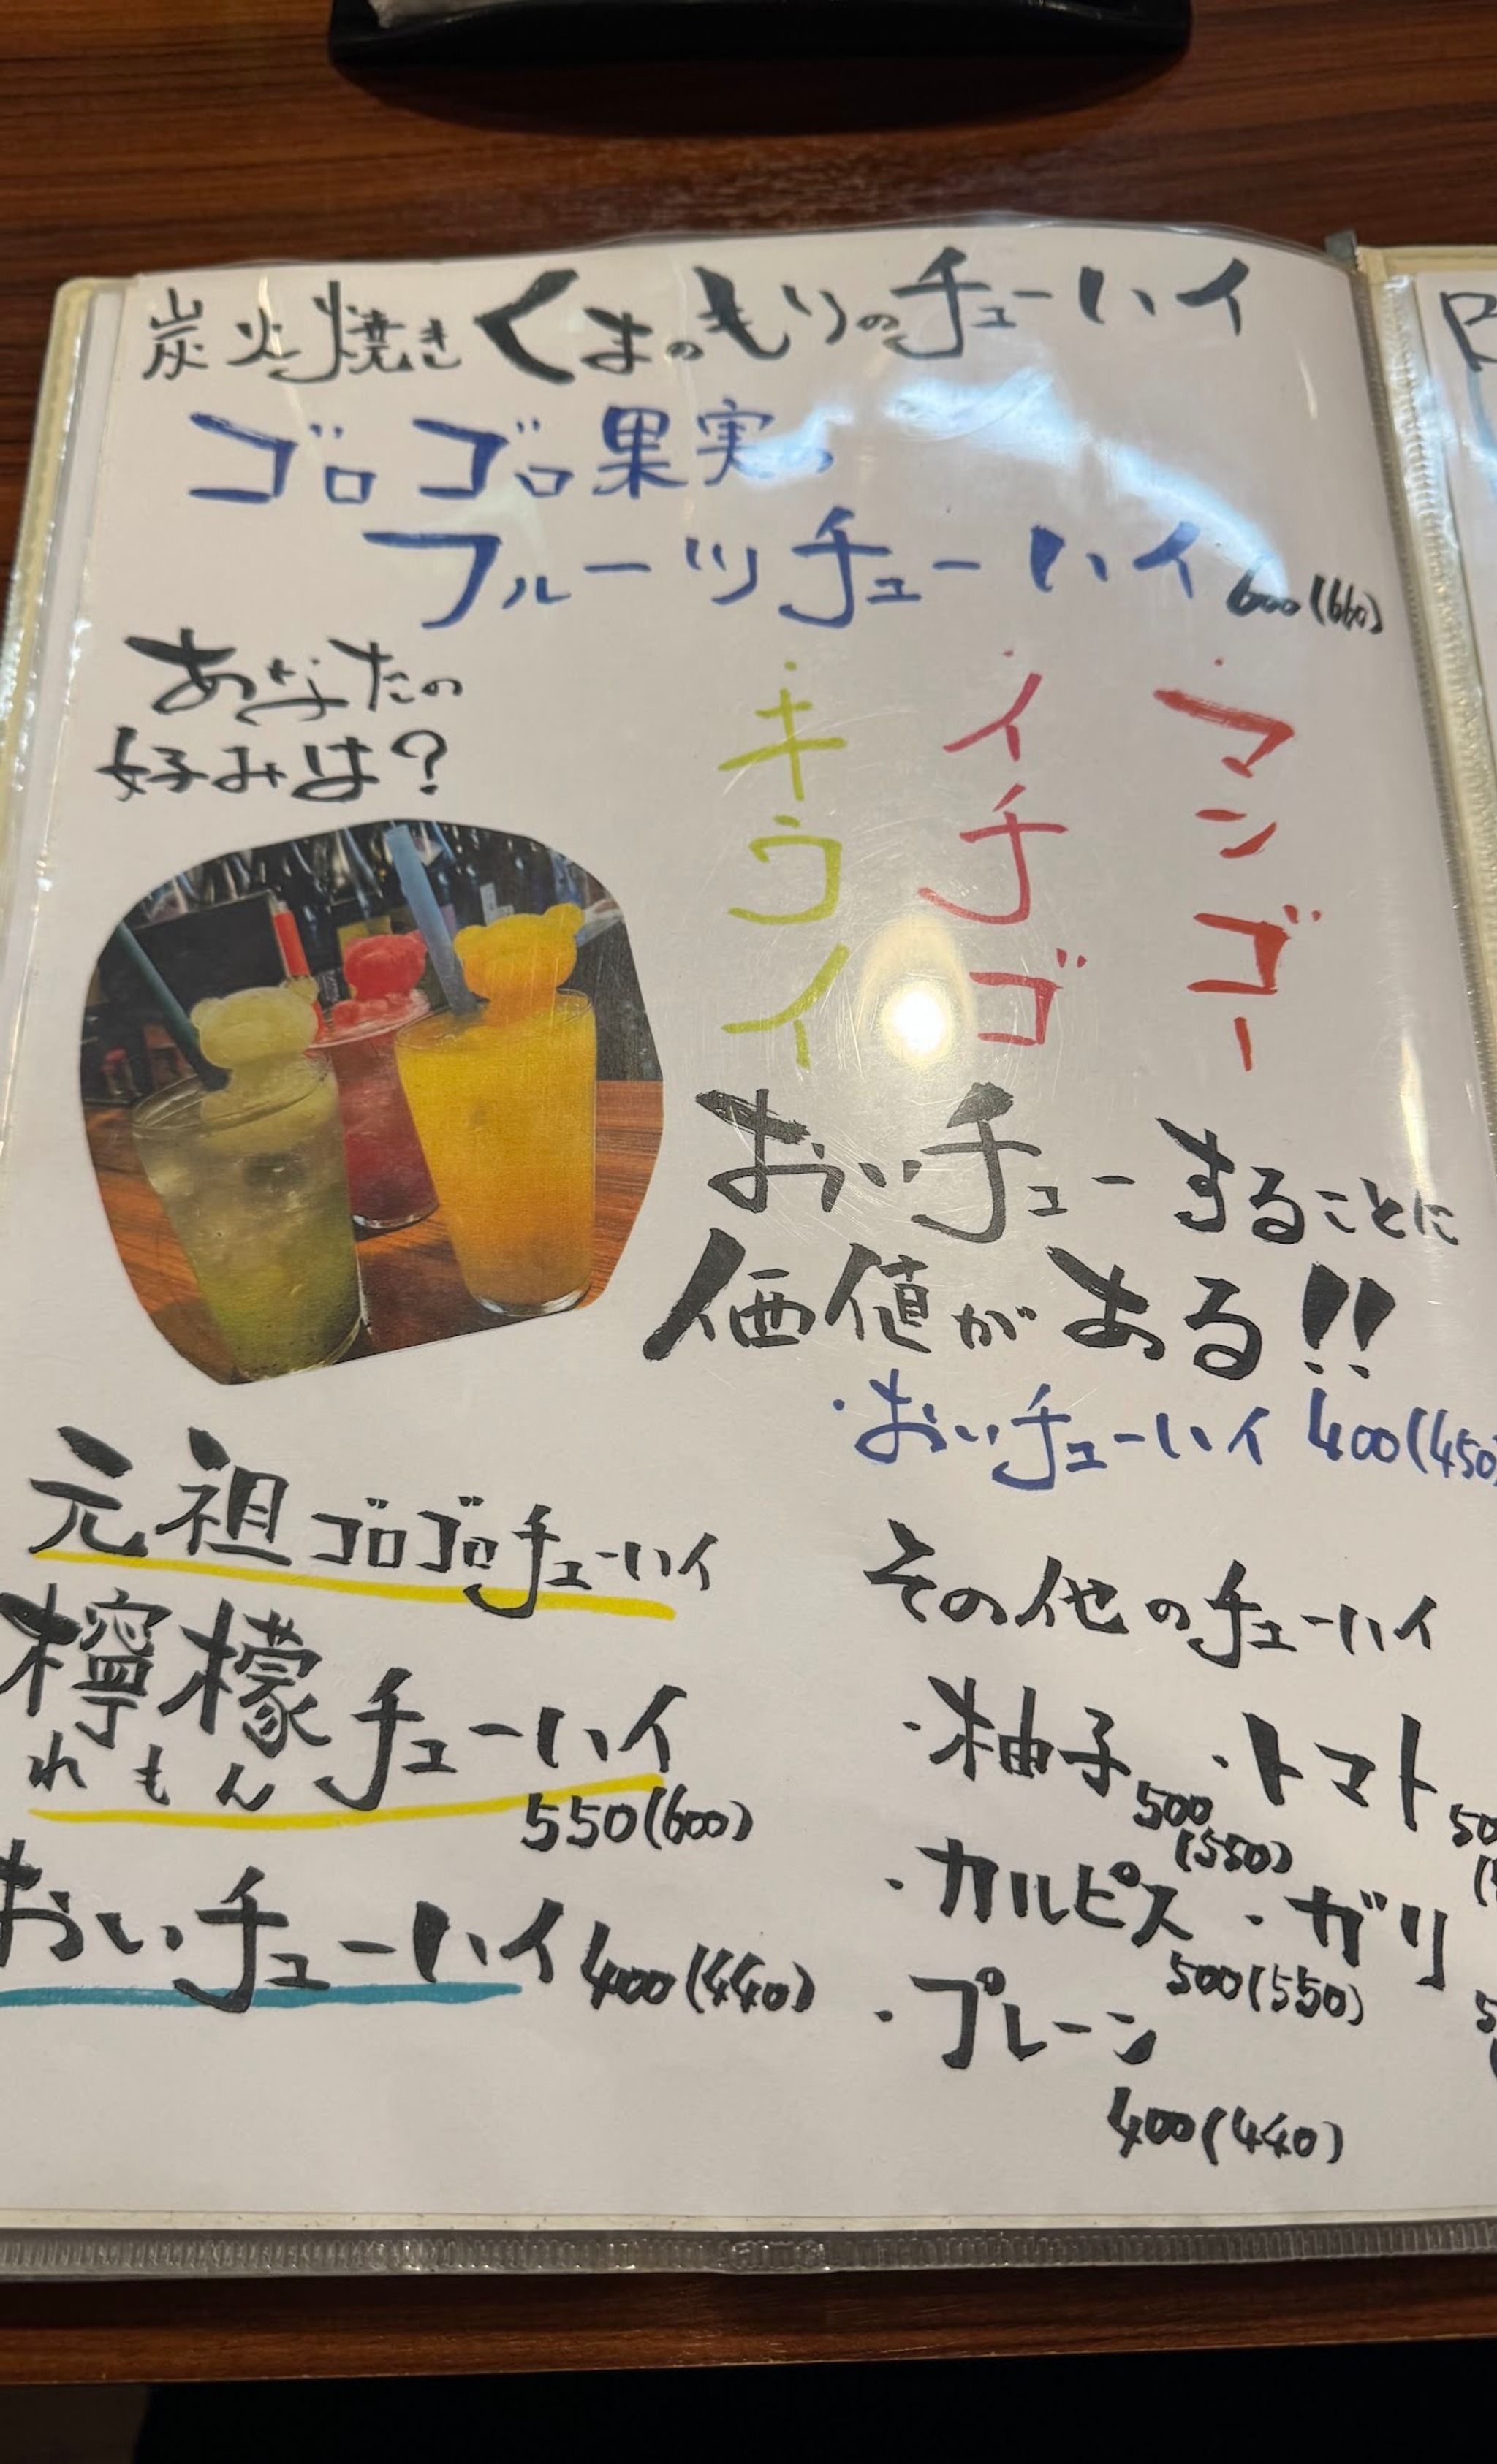 炭火焼きくまのもりのチューハイ
ゴロゴロ果実の
フルーツチューハイ 600(660)
あなたの
好みは?
・マンゴー
・イチゴ
・キウイ
おいチューすることに
価値がある!!
・おいチューハイ 400(450)
元祖ゴロゴロチューハイ
檸檬チューハイ
れもん
550(600)
おいチューハイ 400(440)
その他のチューハイ
・柚子 500(550)
・トマト
・カルピス 500(550)
・ガリ
・プレーン
400(440)